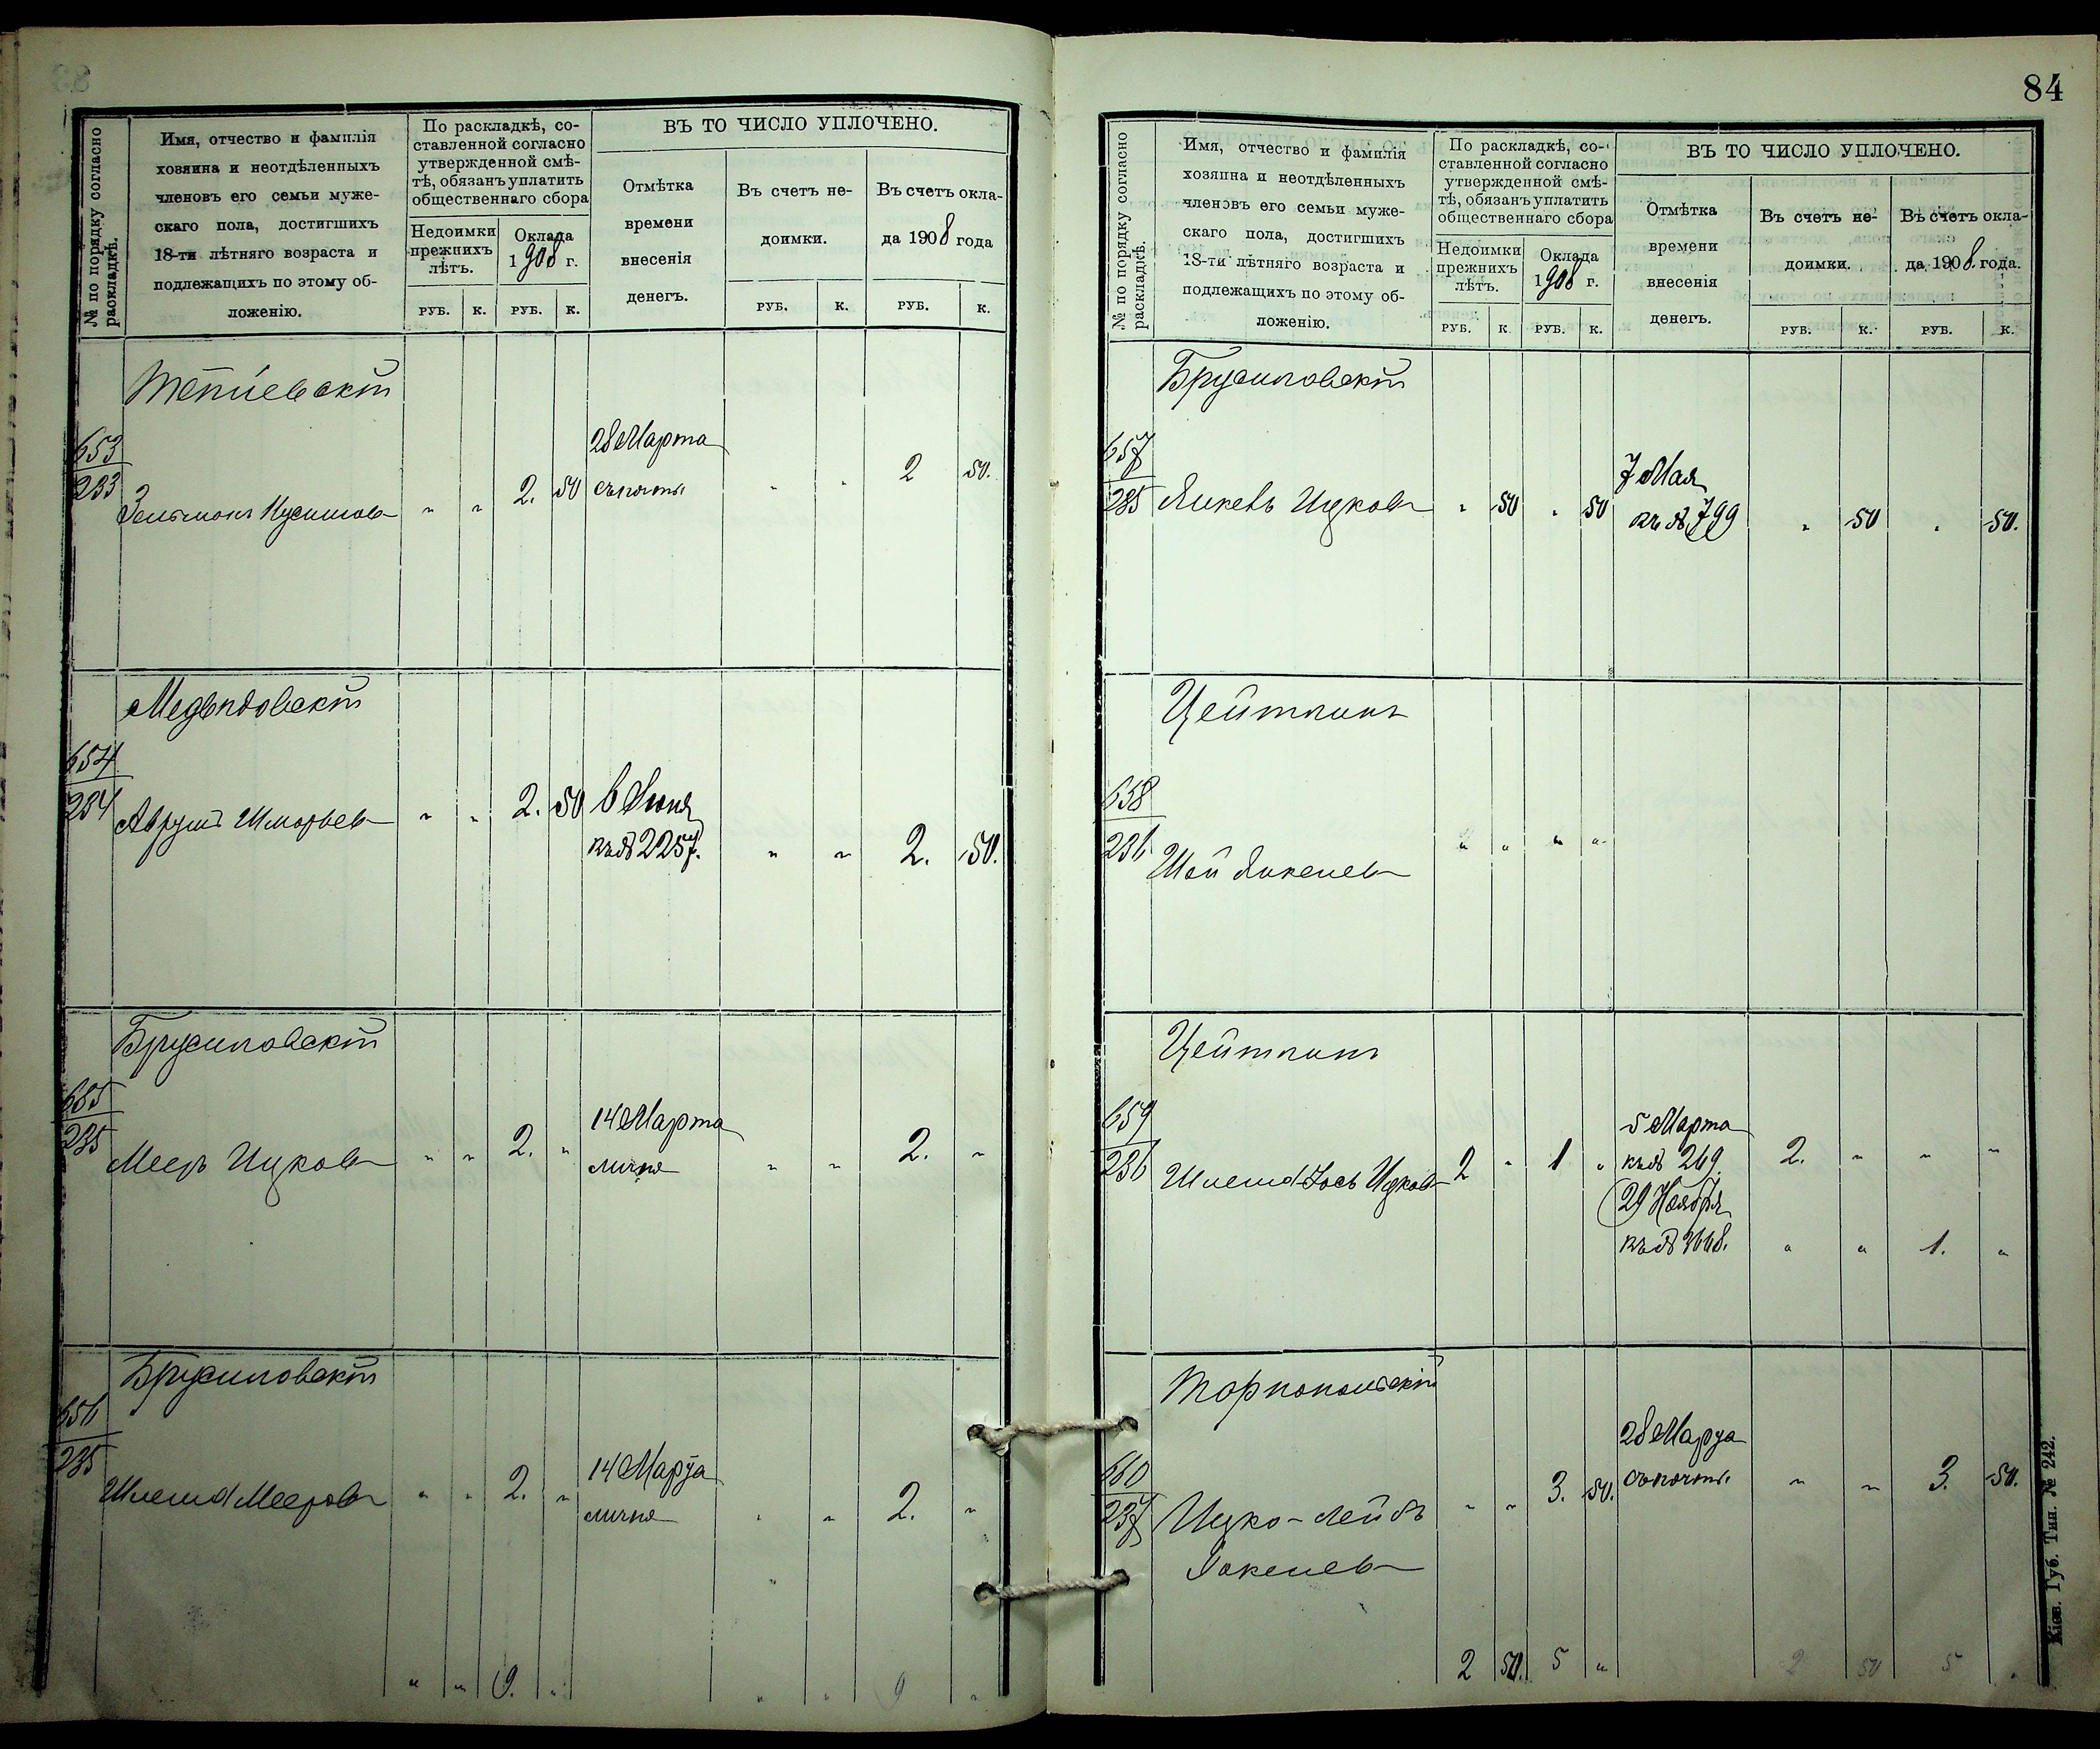 84
№ по порядку согласно раскладкѣ.
Имя, отчество и фамилія
хозяина и неотдѣленныхъ
членовъ его семьи муже-
скаго пола, достигшихъ
18-ти лѣтняго возраста и
подлежащихъ по этому об-
ложенію.
По раскладкѣ, со-
ставленной согласно
утвержденной смѣ-
тѣ, обязанъ уплатить
общественнаго сбора
Недоимки прежнихъ лѣтъ.
Оклада 1908 г.
РУБ. К. РУБ. К.
ВЪ ТО ЧИСЛО УПЛОЧЕНО.
Отмѣтка
времени
внесенія
денегъ.
Въ счетъ не-
доимки.
Въ счетъ окла-
да 1908 года
РУБ. К. РУБ. К.
653
233
28 Марта
" " 2. 50 " " 2 50.
Медвѣдовскій
654
234
Аврумъ " " 2. 50 6 Іюня
къ № 2257. " " 2. 50.
Брусиловскій
655
235
Мееръ Ицковъ " " 2. " 14 Марта
лично " " 2. "
Брусиловскій
656
235
Шлема Мееровъ " " 2. " 14 Марта
лично " " 2. "
" " 9. " " " 9 "
№ по порядку согласно раскладкѣ.
Имя, отчество и фамилія
хозяина и неотдѣленныхъ
членовъ его семьи муже-
скаго пола, достигшихъ
18-ти лѣтняго возраста и
подлежащихъ по этому об-
ложенію.
По раскладкѣ, со-
ставленной согласно
утвержденной смѣ-
тѣ, обязанъ уплатить
общественнаго сбора
Недоимки прежнихъ лѣтъ.
Оклада 1908 г.
РУБ. К. РУБ. К.
ВЪ ТО ЧИСЛО УПЛОЧЕНО.
Отмѣтка
времени
внесенія
денегъ.
Въ счетъ не-
доимки.
Въ счетъ окла-
да 1908. года.
РУБ. К. РУБ. К.
Брусиловскій
657
235
Янкель Ицковъ " 50 " 50 7 Мая
къ № 799 " 50 " 50.
Цейтлинъ
658
236
Янкелевъ " " " "
Цейтлинъ
659
236
Шлема-Іось Ицковъ 2 " 1 " 5 Марта
къ № 269. 2. " " "
29 Ноября
къ № 3668. " " 1. "
Торнопольскій
660
237
Ицко-Лейбъ " " 3. 50. 28 Марта
" " 3. 50.
2 50. 5 " 2 50 5 "
Кіев. Губ. Тип. № 242.